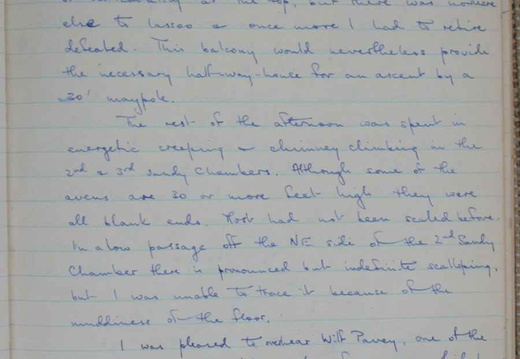 at the top, but there was nowhere
else to lassoo & once more I had to retire
defeated. This balcony would nevertheless provide
the necessary half-way-house for an ascent by a
30' maypole.
The rest of the afternoon was spent in
energetic creeping & chimney climbing in the
2nd & 3rd Sandy Chambers. Although some of the
avens are 30 or more feet high they were
all blank ends. Most had not been scaled before.
In a low passage off the NE side of the 2nd Sandy
Chamber there is pronounced but indefinite scalloping,
but I was unable to trace it because of the
muddiness of the floor.
I was pleased to overhear Wilf Pavey, one of the